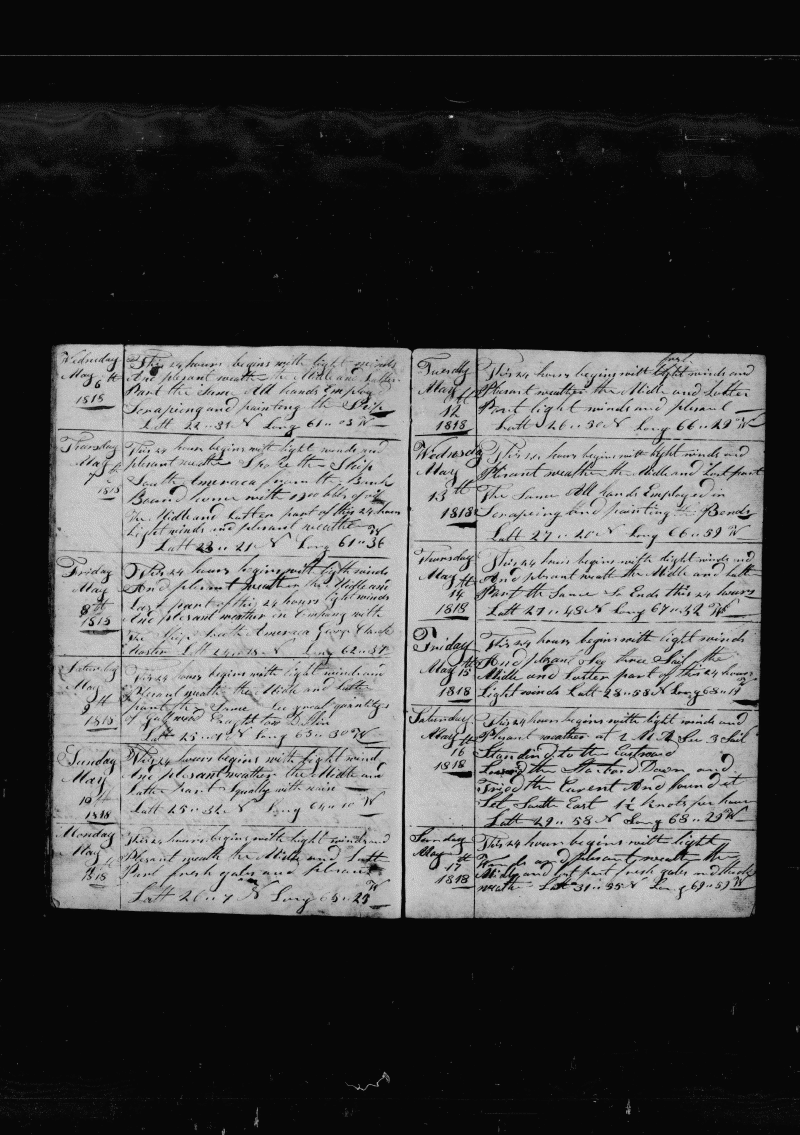 Wednesday
May 6th
1818
This 24 hours begins with light winds
And plesant weather the Midle and Latter
Part the Same All hands Employ
Scrapeing and painting the Ship
Latt 22 " 31 N Long 61 " 03 W
Thursday
May
7th
1818
This 24 hours begins with light winds and
plesant weather Spoke the Ship
South Emeraca from the Bank
Bound home with 1700 bbls of oil
The Midle and Latter part of this 24 hours
Light winds and plesant weather
Latt 23 " 21 N Long 61 " 36 W
Friday
May
8th
1818
This 24 hours begins with light winds
And plesant weather the Midle and
Last part of this 24 hours light winds
And plesant weather in Company with
the Ship South America George Clark
Master Latt 24 " 18 N Long 62 " 37
Saterday
May
9th
1818
This 24 hours begins with light winds and
Plesant weath the Midle and Latter
part the Same See great quantitys
of Gulf weed Caught
Latt 25 " N Long 63 " 30 W
Sunday
May
10th
1818
This 24 hours begins with light wind
And plesant weather the Midle and
Latter part Squally with rain
Latt 25 " 32 N Long 64 " 10 W
Monday
May
11
1818
This 24 hours begins with light winds and
Plesant weath the Midle and Latt
Part fresh gales and plesant
Latt 26 " 7 N Long 65 " 23 W
Tuesday
May
12
1818
This 24 hours begins with light winds and
Plesant weather the Midle and Latter
Part light winds and plesant
Latt 26 " 30 N Long 66 " 29 W
Wednesdy
May
13th
1818
This 24 hours begins with light winds and
Plesant weather the Midle and Last part
The Same All hands Employed in
Scrapeing and painting the Bends
Latt 27 " 20 N Long 66 " 59 W
Thursday
May
14th
1818
This 24 hours begins with light winds and
And plesant weath the Midle and Latt
Part the Same So Ends this 24 hours
Latt 27 " 48 N Long 67 " 32 W
Friday
May 15th
1818
This 24 hours begins with light winds
And plesant See three Sail the
Midle and Latter part of this 24 hours
Light winds Latt 28 " 58 N Long 68 " 19 W
Saturday
May
16th
1818
This 24 hours begins with light winds and
Plesant weather at 2 See 3 Sail
Standind to the Eastward
the Starbord Down and
Tried the Curent And found it
Set South East 1½ knots per hour
Latt 29 " 58 N Long 68 " 29 W
Sunday
May
17th
1818
This 24 hours begins with light
Winds and plesant weath the
Midle and last part fresh gales and thick
weath Latt 31 " 35 N Long 69 " 59 W